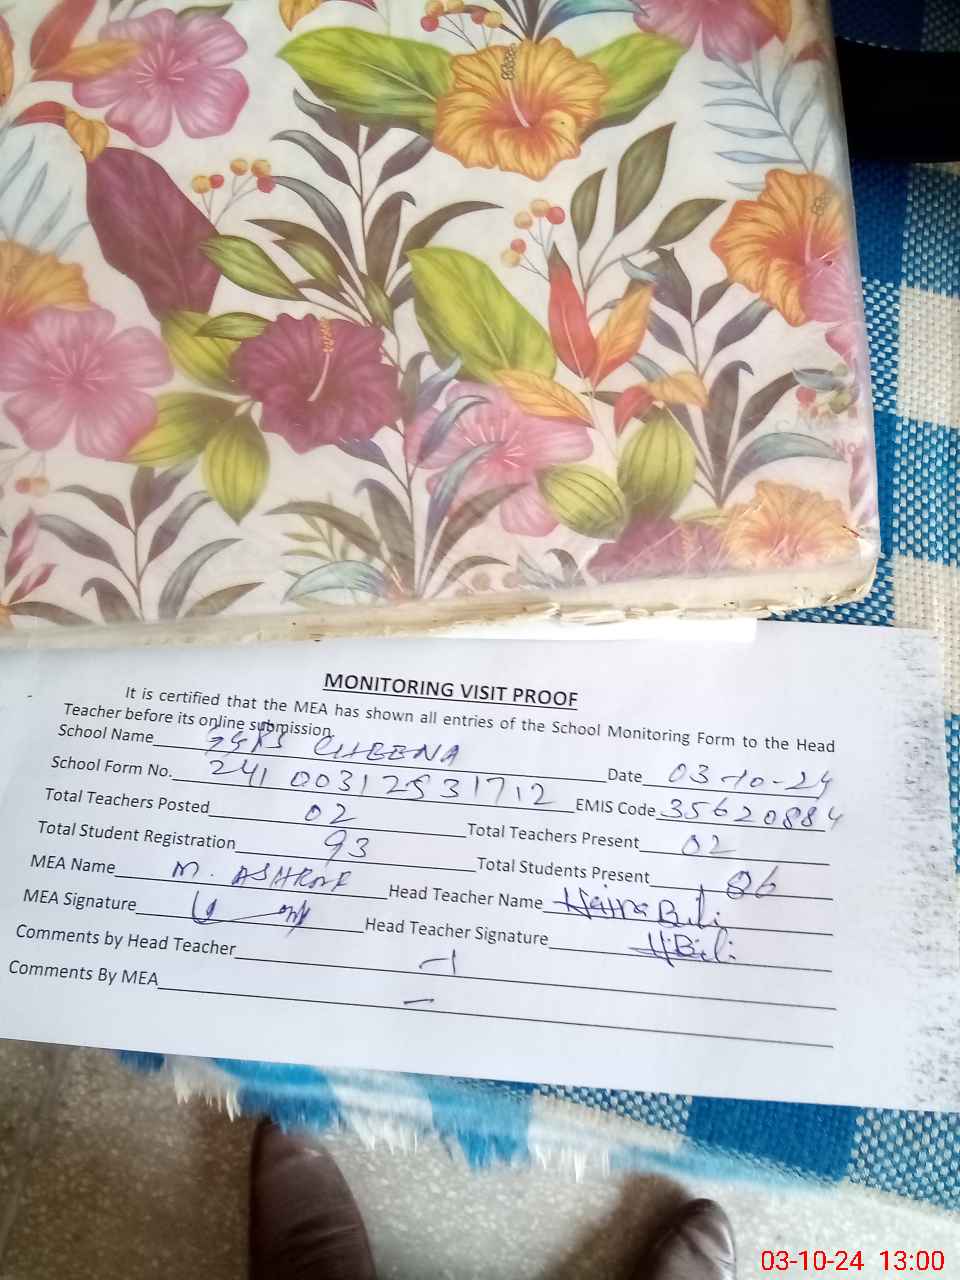 MONITORING VISIT PROOF
It is certified that the MEA has shown all entries of the School Monitoring Form to the Head
Teacher before its online submission.
School Name CHEENA Date 03-10-24
School Form No. 24100312531712 EMIS Code 35620884
Total Teachers Posted 02 Total Teachers Present 02
Total Student Registration 93 Total Students Present 86
MEA Name M. ASHRAF Head Teacher Name Bibi
MEA Signature Head Teacher Signature
Comments by Head Teacher
Comments By MEA
03-10-24 13:00